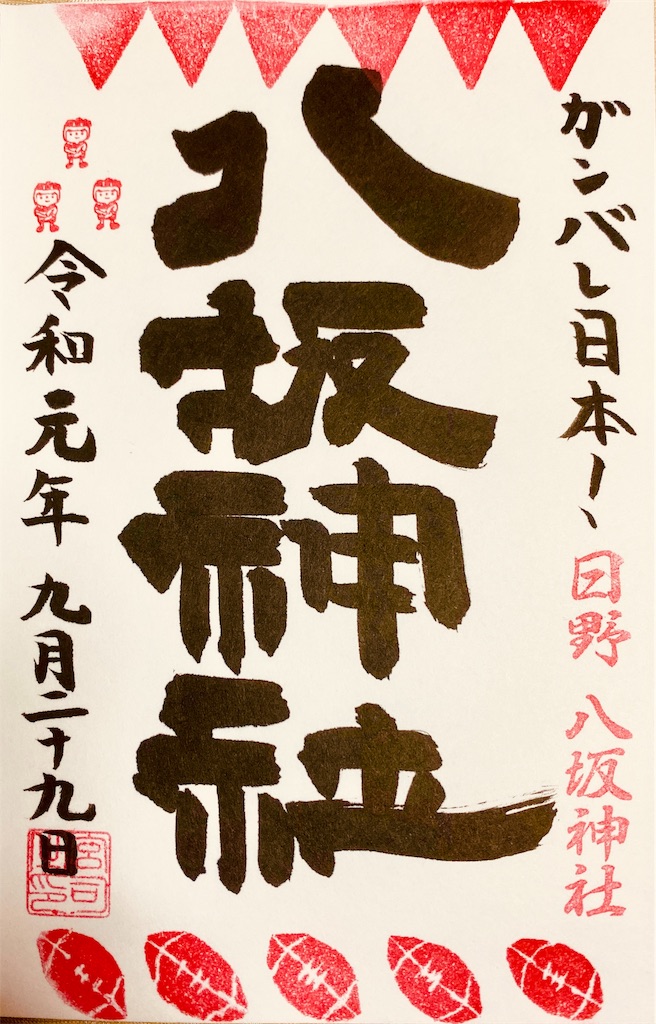 ガンバレ日本!、
日野 八坂神社
八坂神社
令和元年 九月二十九日